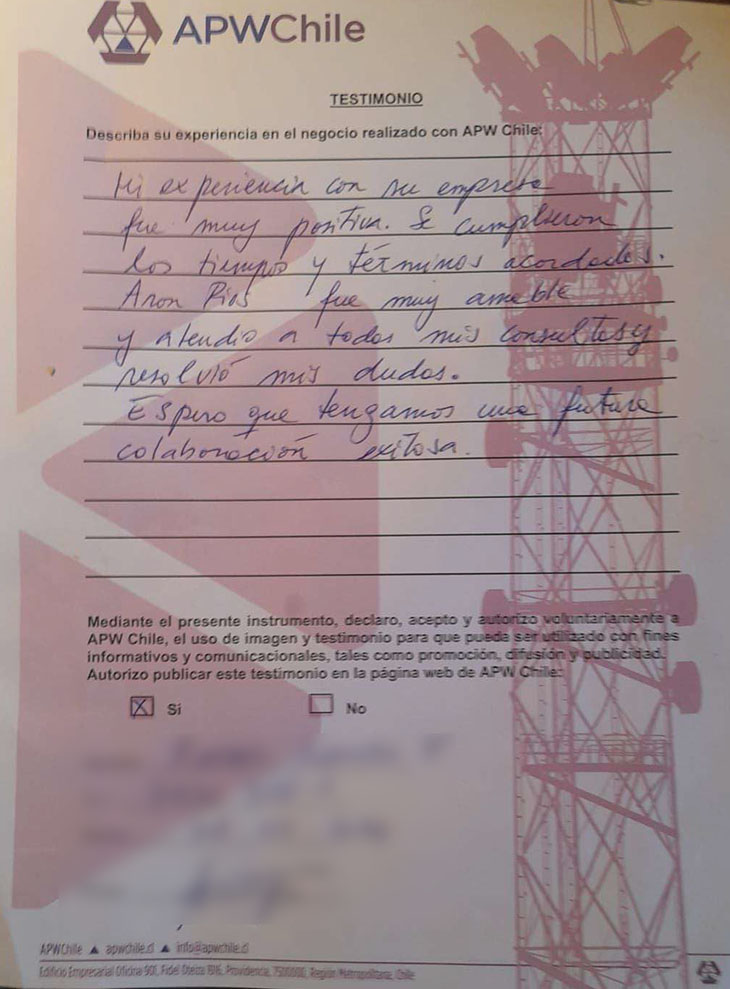 APWChile
TESTIMONIO
Describa su experiencia en el negocio realizado con APW Chile:
Mi experiencia con su empresa
fue muy positiva. Se cumplieron
los tiempos y términos acordados.
Aron Rios fue muy amable
y atendio a todas mis consultas y
resolvió mis dudas.
Espero que tengamos una futura
colaboración exitosa.
Mediante el presente instrumento, declaro, acepto y autorizo voluntariamente a
APW Chile, el uso de imagen y testimonio para que pueda ser utilizado con fines
informativos y comunicacionales, tales como promoción, difusión y publicidad.
Autorizo publicar este testimonio en la página web de APW Chile:
X Si No
APWChile ▲ apwchile.cl ▲ info@apwchile.cl
Edificio Empresarial Oficina 901, Fidel Oteiza 1916, Providencia, 7500000, Región Metropolitana, Chile